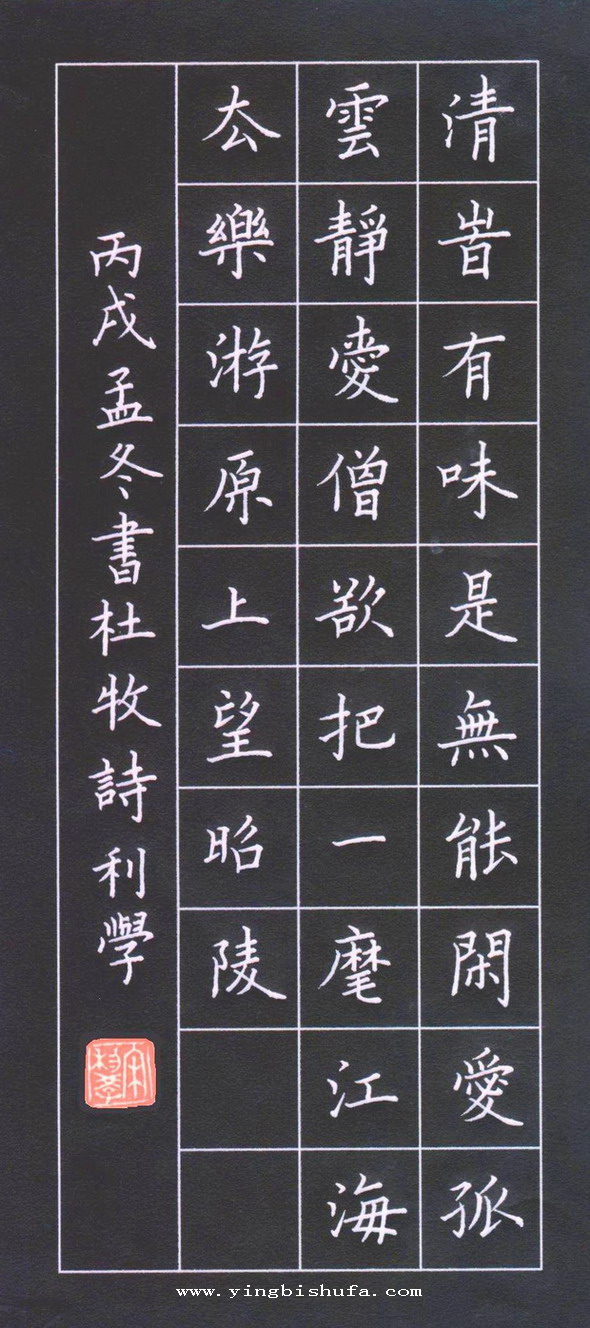 清旹有味是無能閑愛孤
雲靜愛僧欲把一麾江海
厺樂游原上望昭陵
丙戌孟冬書杜牧詩利學
www.yingbishufa.com